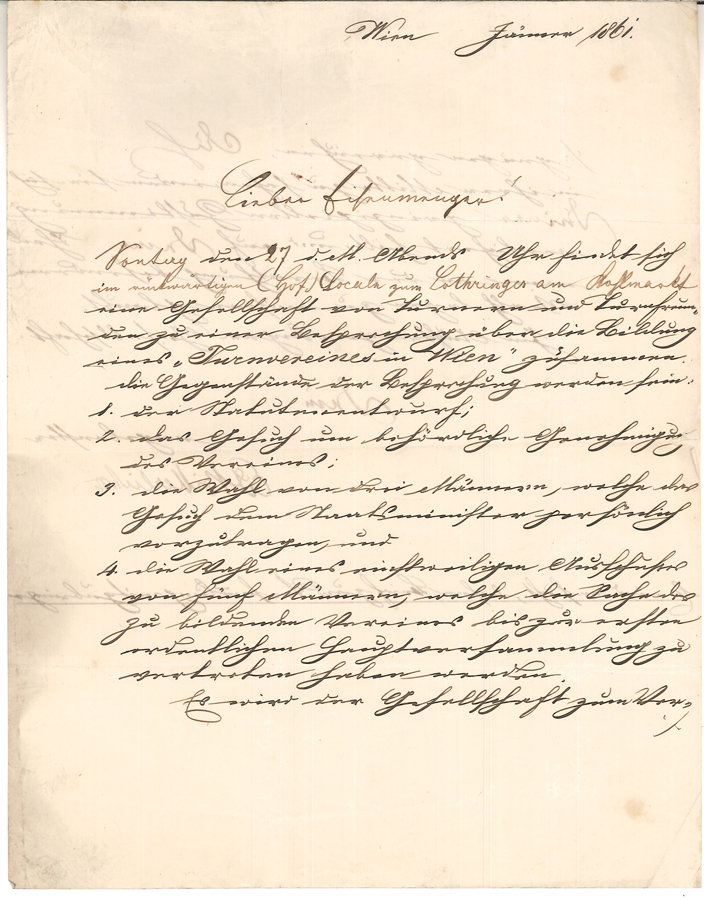 Wien Jänner 1861.
Lieber Eisenmenger!
Sontag den 27 d. M. Abends Uhr findet sich
im rückwärtigen (Hof) Locale zum Lothringer am Kohlmarkt
eine Gesellschaft von Turnern und Turnfreun-
den zu einer Besprechung über die Bildung
eines „Turnvereines in Wien“ zusammen.
die Gegenstände der Besprechung werden sein:
1. der Statutenentwurf;
2. das Gesuch um behördliche Genehmigung
des Vereines;
3. die Wahl von drei Männern, welche das
Gesuch dem Staatsminister persönlich
vorzutragen, und
4. die Wahl eines einstweiligen Ausschußes
von fünf Männern, welche die Sache des
zu bildenden Vereines bis zur ersten
ordentlichen Hauptversammlung zu
vertreten haben werden.
Es wird der Gesellschaft zum Ver-
./.